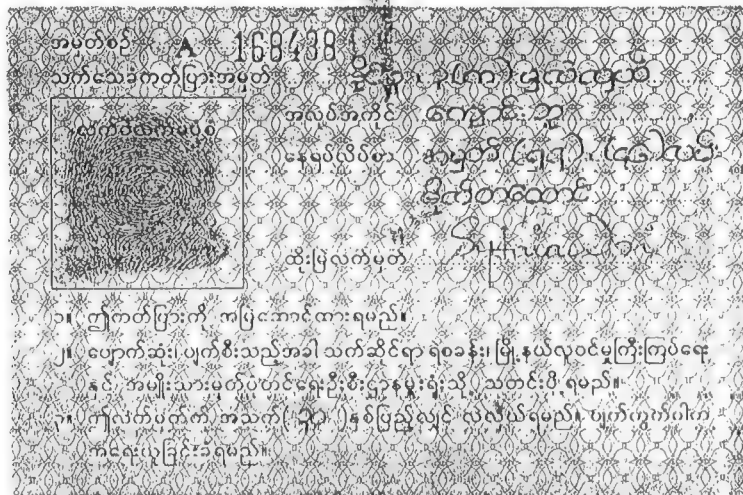 အမှတ်စဉ် A 168438
သက်သေခံကတ်ပြားအမှတ်
လက်ဝဲလက်မပုံစံ
အလုပ်အကိုင် ကျောင်းသူ
နေရပ်လိပ်စာ အမှတ် (၅၅)၊ (၄၆)လမ်း
ဗိုလ်တထောင်
ထိုးမြဲလက်မှတ်
၁။ ဤကတ်ပြားကို အမြဲဆောင်ထားရမည်။
၂။ ပျောက်ဆုံး၊ ပျက်စီးသည့်အခါ သက်ဆိုင်ရာ ရဲစခန်း၊ မြို့နယ်လူဝင်မှုကြီးကြပ်ရေး
နှင့် အမျိုးသားမှတ်ပုံတင်ရေးဦးစီးဌာနမှူးရုံးသို့ သတင်းပို့ရမည်။
၃။ ဤလက်မှတ်ကို အသက်( ၃၀ )နှစ်ပြည့်လျှင် လဲလှယ်ရမည်။ ပျက်ကွက်ပါက
အရေးယူခြင်းခံရမည်။